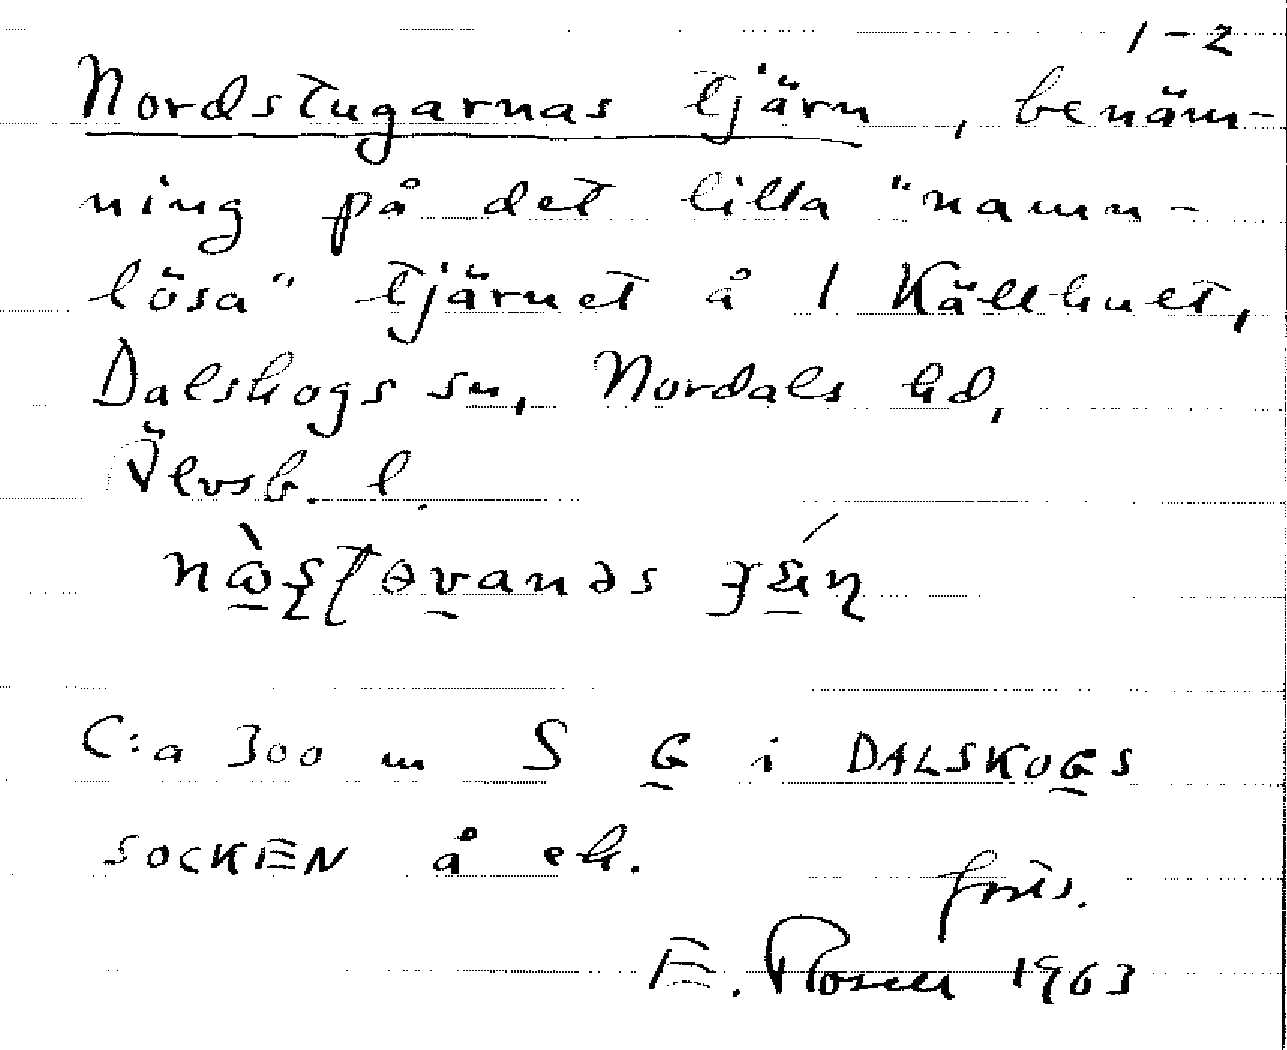 1-2
Nordstugarnas tjärn, benäm-
ning på det lilla "namn-
lösa" tjärnet å 1 Källhult,
Dalskogs sn, Nordals hd,
Älvsb. l.
C:a 300 m S G i DALSKOGS
SOCKEN å ek.
forts.
E. Rosell 1963